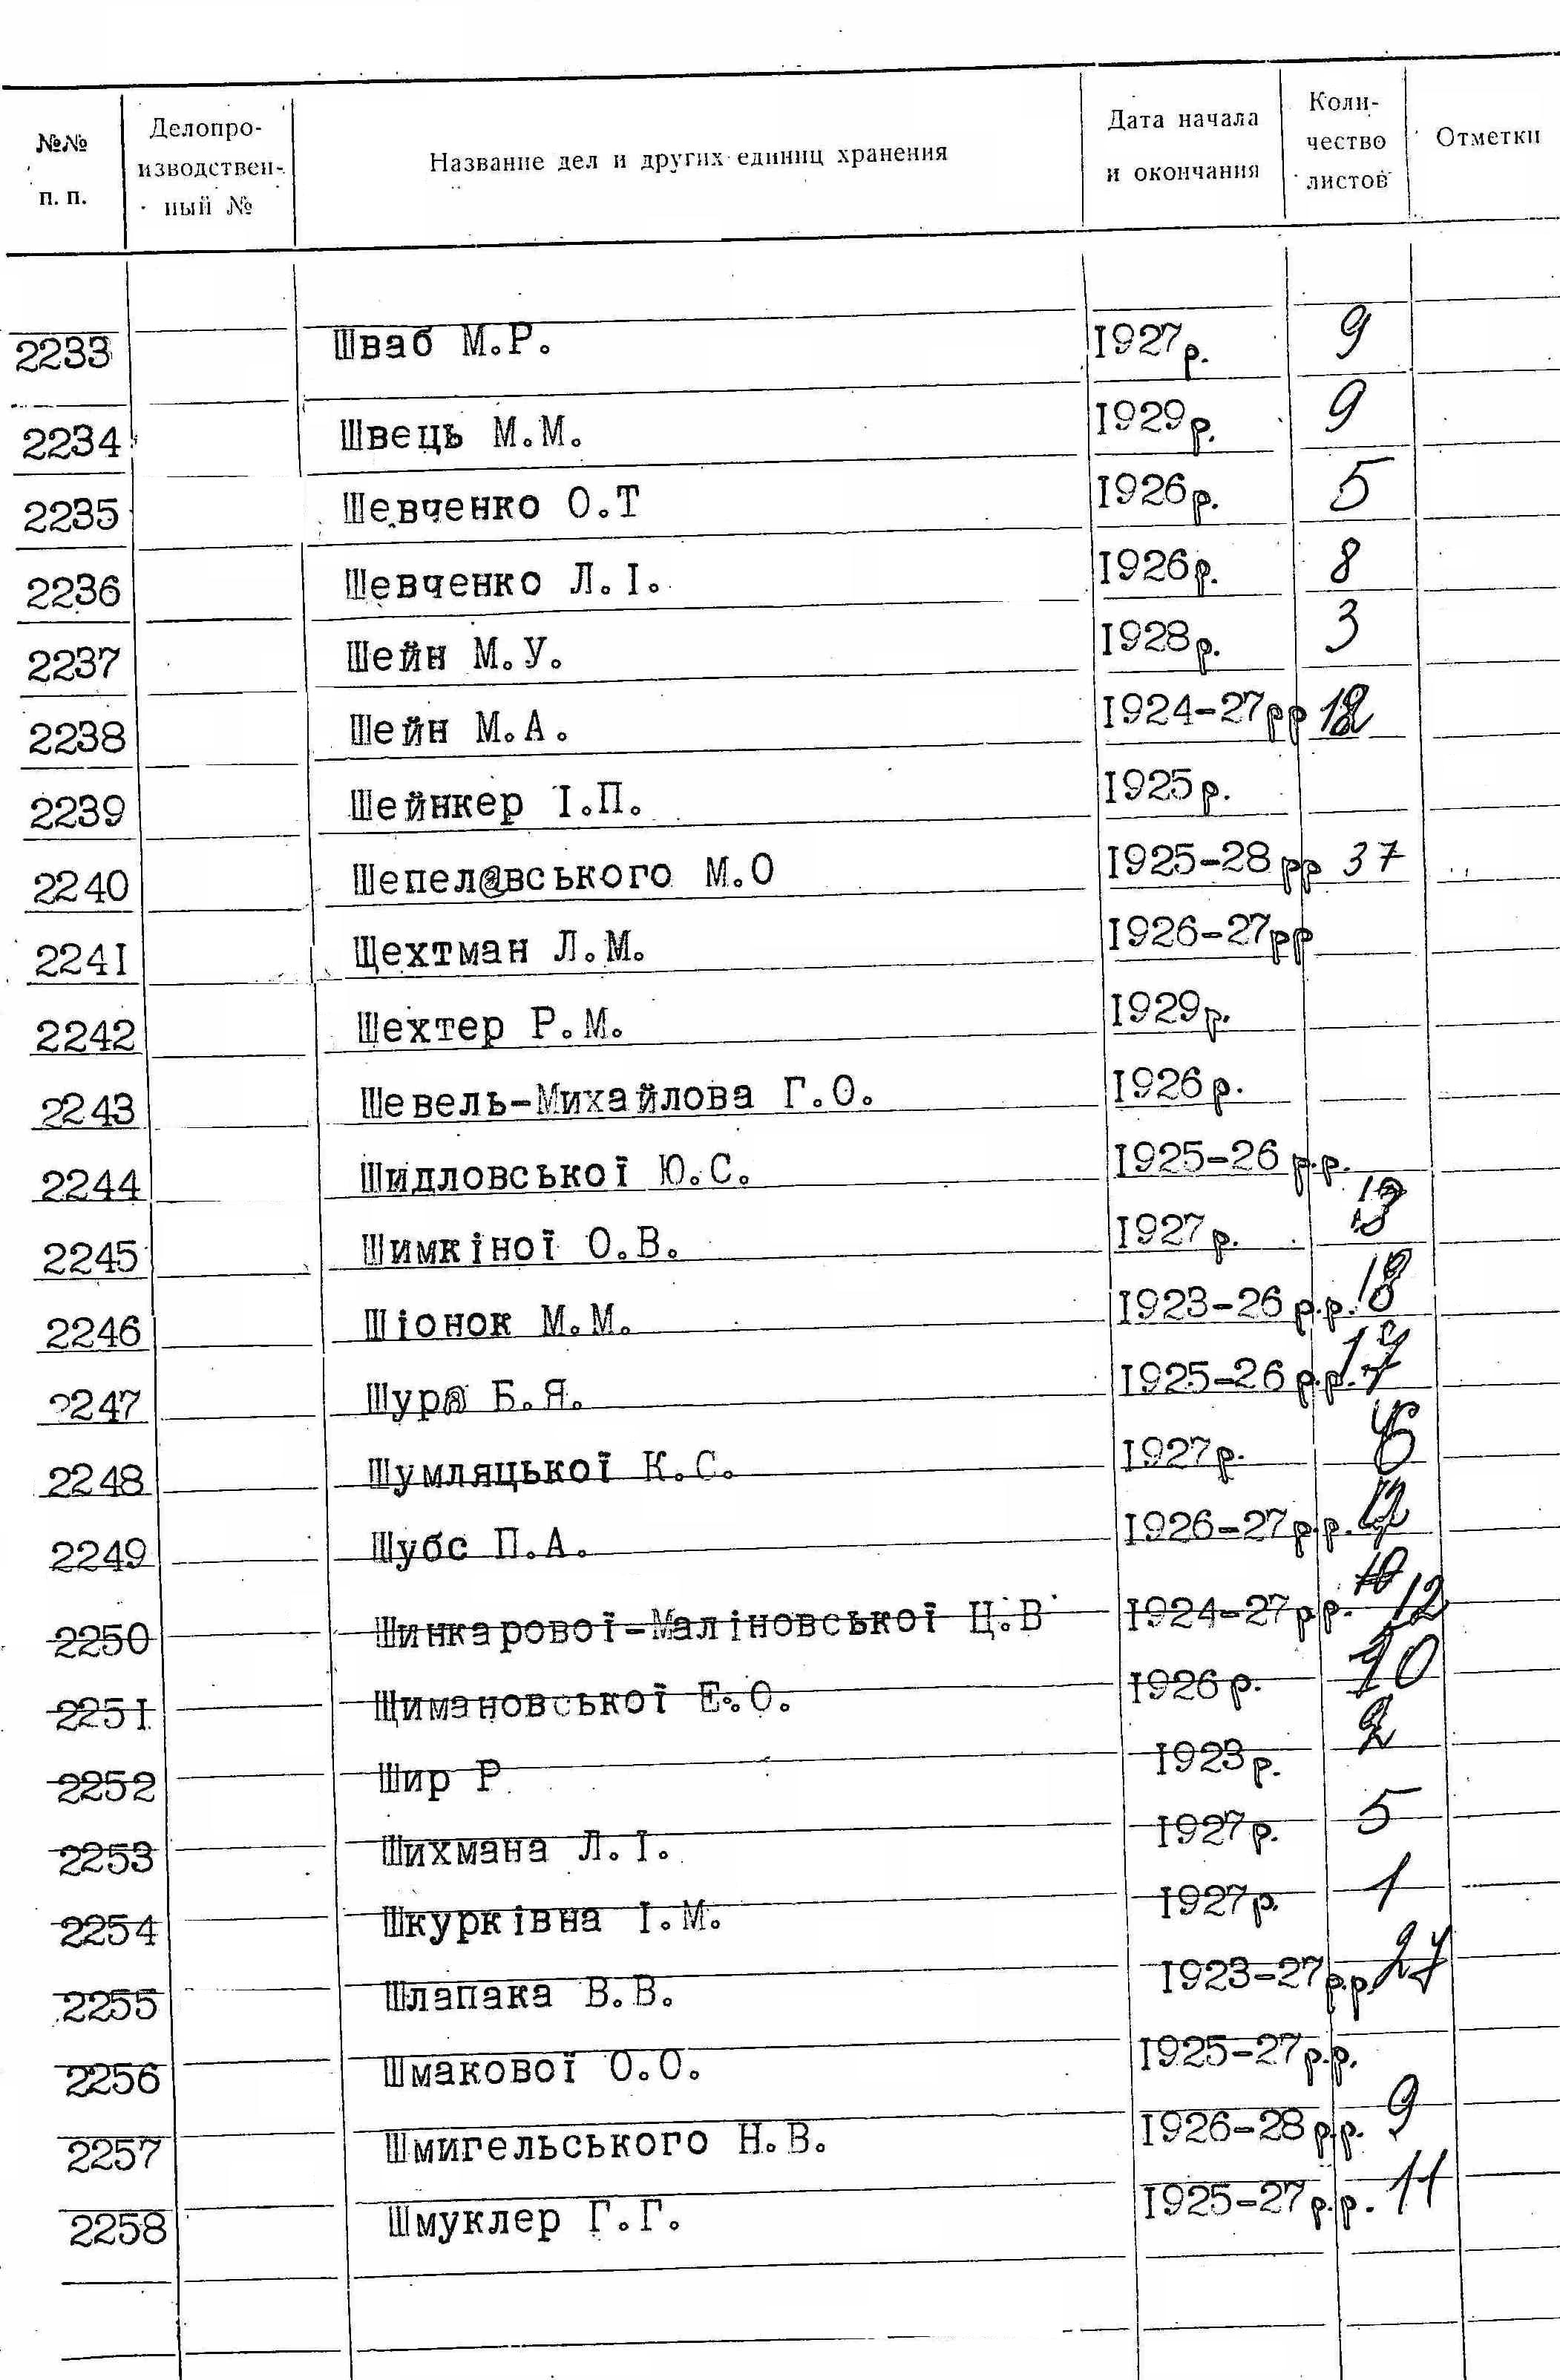 №№ п. п. Делопроизводственный № Название дел и других единиц хранения Дата начала и окончания Количество листов Отметки
2233 Шваб М.Р. 1927р. 9
2234 Швець М.М. 1929р. 9
2235 Шевченко О.Т 1926р. 5
2236 Шевченко Л.І. 1926р. 8
2237 Шейн М.У. 1928р. 3
2238 Шейн М.А. 1924-27рр
2239 Шейнкер І.П. 1925р.
2240 Шепелевського М.О 1925-28рр 37
2241 Щехтман Л.М. 1926-27рр
2242 Шехтер Р.М. 1929р.
2243 Шевель-Михайлова Г.О. 1926р.
2244 Шидловської Ю.С. 1925-26 р.р.
2245 Шимкіної О.В. 1927р.
2246 Шіонок М.М. 1923-26 р.р. 18
2247 Шура Б.Я. 1925-26 р.р. 17
2248 Шумляцької К.С. 1927р. 6
2249 Шубс П.А. 1926-27р.р.
2250 Шинкарової-Маліновської Ц.В 1924-27рр. 10 12
2251 Щимановської Е.О. 1926р. 10
2252 Шир Р 1923р. 2
2253 Шихмана Л.І. 1927р. 5
2254 Шкурківна І.М. 1927р. 1
2255 Шлапака В.В. 1923-27р.р. 27
2256 Шмакової О.О. 1925-27р.р.
2257 Шмигельського Н.В. 1926-28р.р. 9
2258 Шмуклер Г.Г. 1925-27р.р. 11